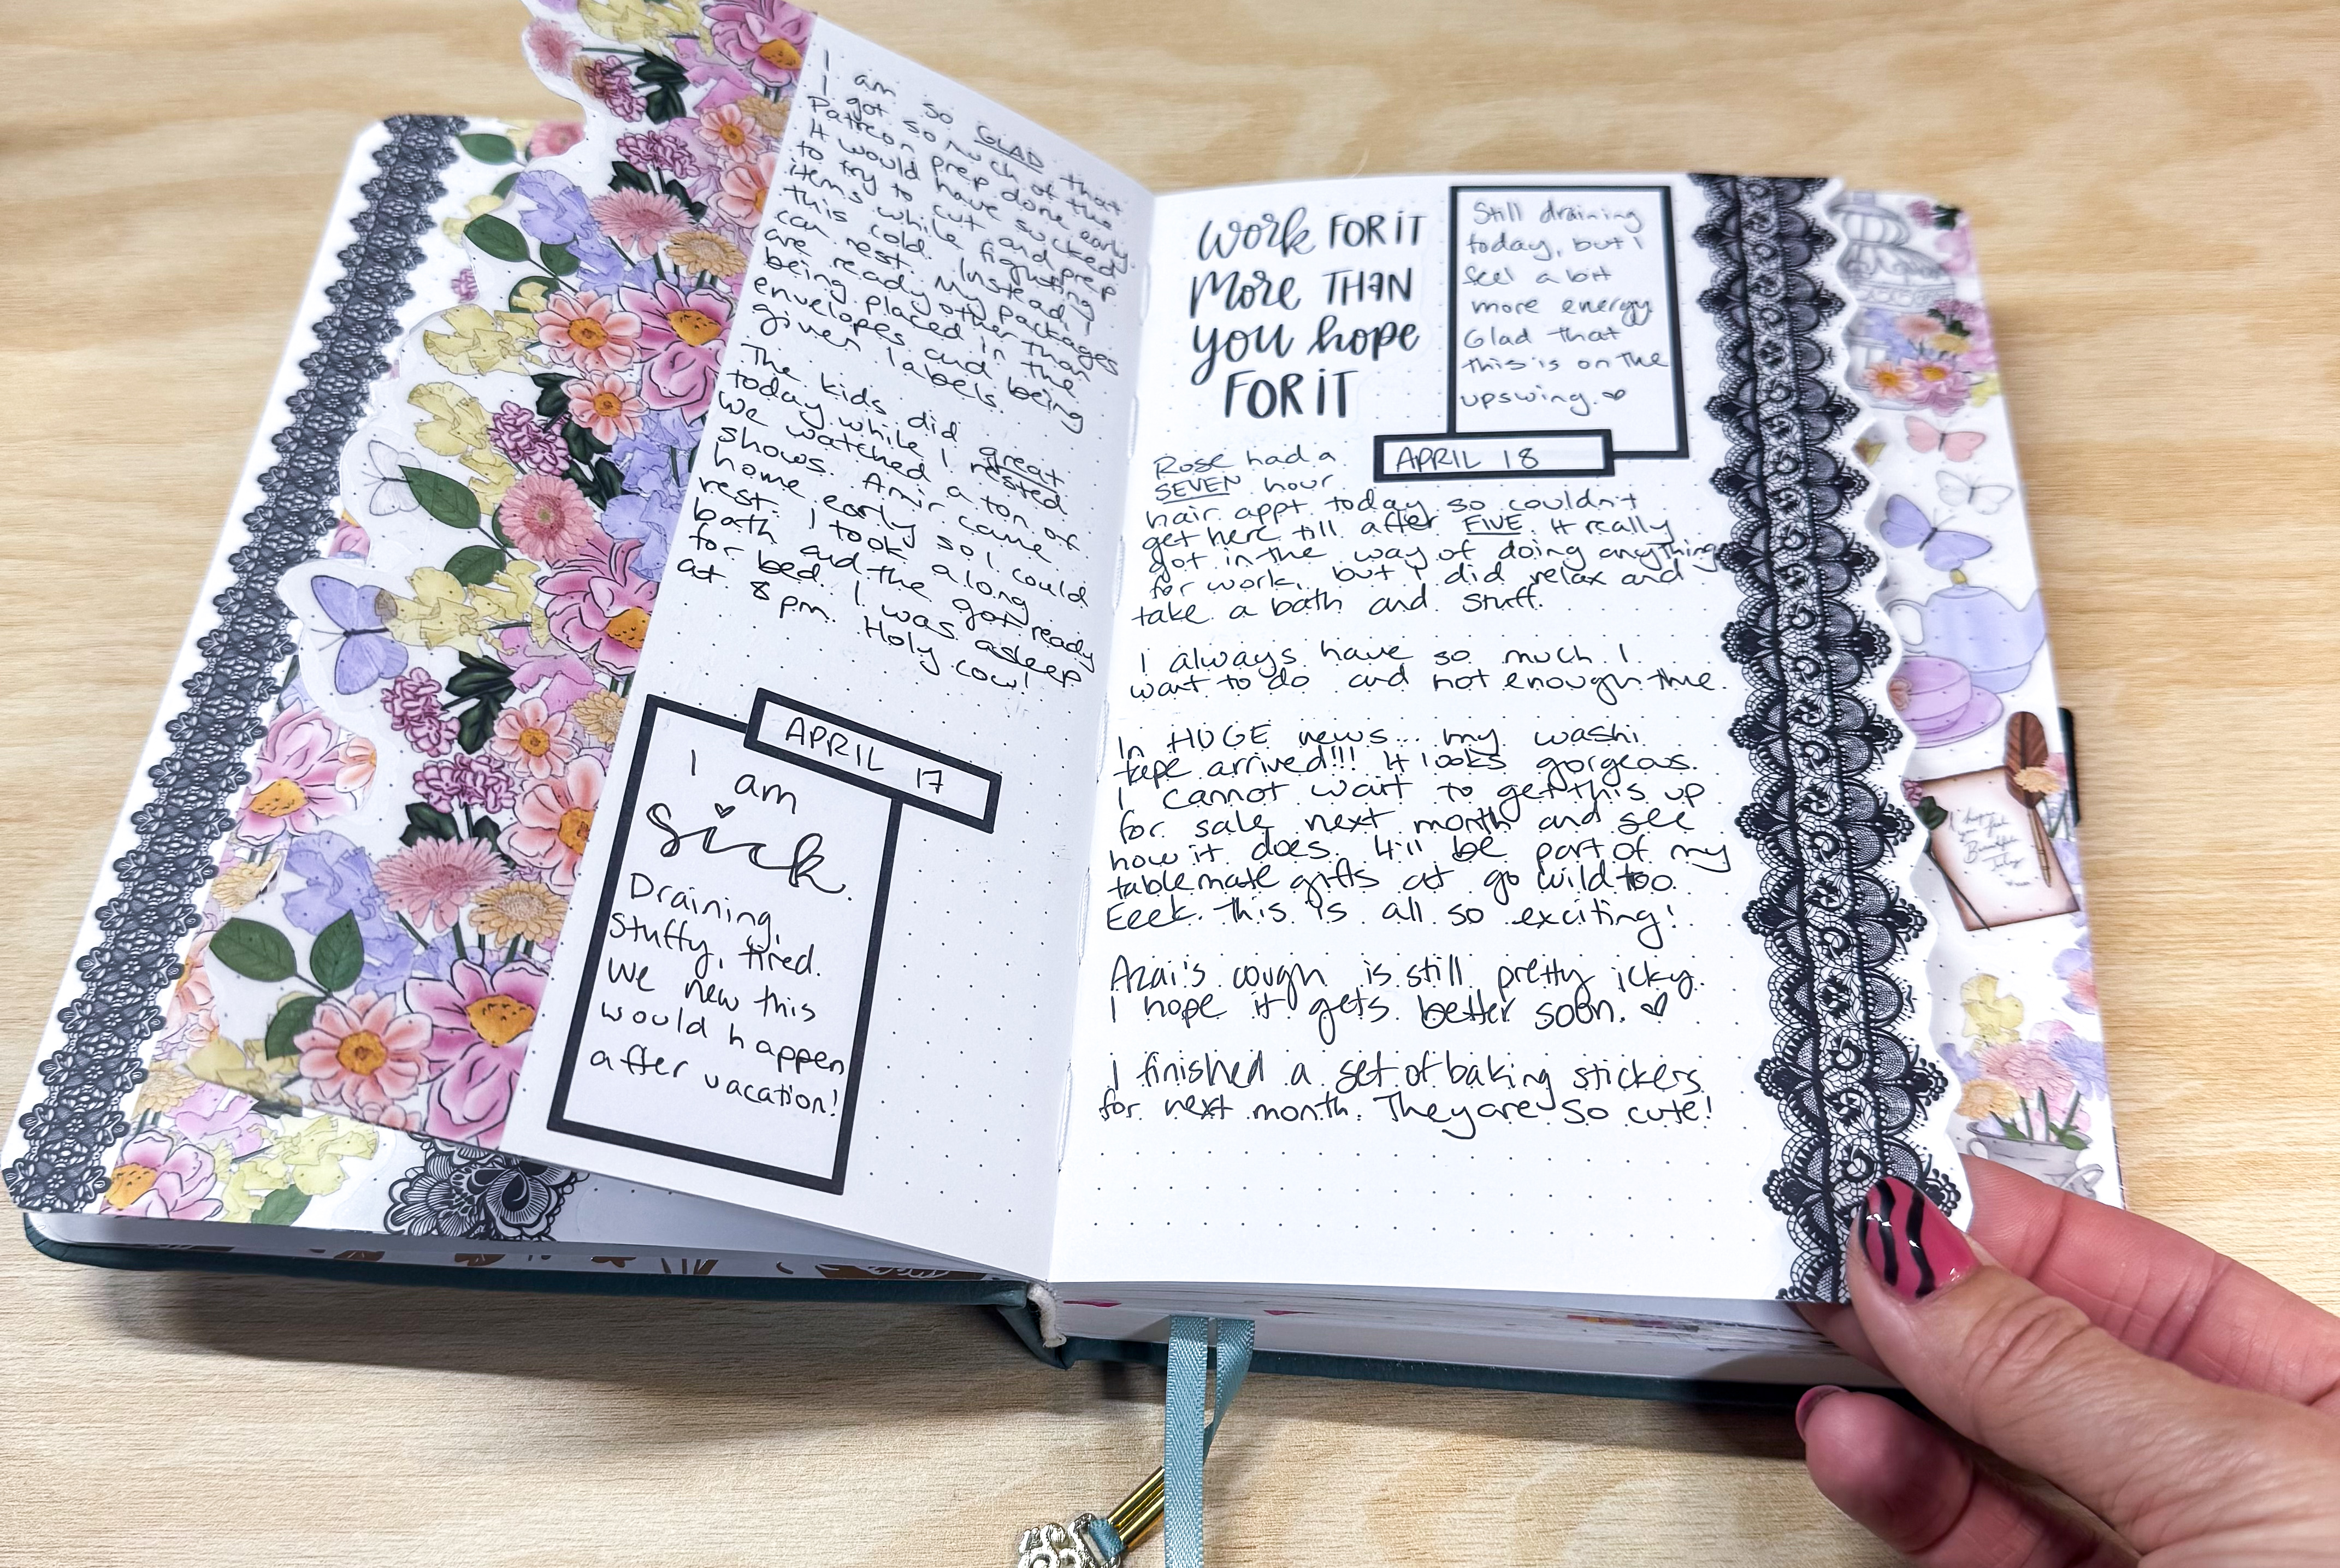 I am so GLAD that
I got so much of the
Patreon prep done early.
It would have sucked
to try to cut and prep
items while fighting
this cold. Instead, I
can rest. My packages
are ready other than
being placed in the
envelopes and being
given labels.
The kids did great
today while I rested
We watched a ton of
shows. Amir came
home early so I could
rest. I took a long
bath and the got ready
for bed. I was asleep
at 8pm. Holy cow!
APRIL 17
I am
sick.
Draining,
Stuffy, tired.
We new this
would happen
after vacation!
Work FOR iT
More THAN
you hope
FOR iT
Still draining
today, but I
feel a bit
more energy
Glad that
this is on the
upswing.
APRIL 18
Rose had a
SEVEN hour
hair appt today so couldn't
get here till after FIVE. It really
got in the way of doing anything
for work, but I did relax and
take a bath and stuff.
I always have so much I
want to do and not enough time.
In HUGE news... my washi
tape arrived!!! It looks gorgeous.
I cannot wait to get this up
for sale next month and see
how it does. It'll be part of my
tablemate gifts at go wild too.
Eeek. This is all so exciting!
Azai's cough is still pretty icky.
I hope it gets better soon.
I finished a set of baking stickers
for next month. They are so cute!